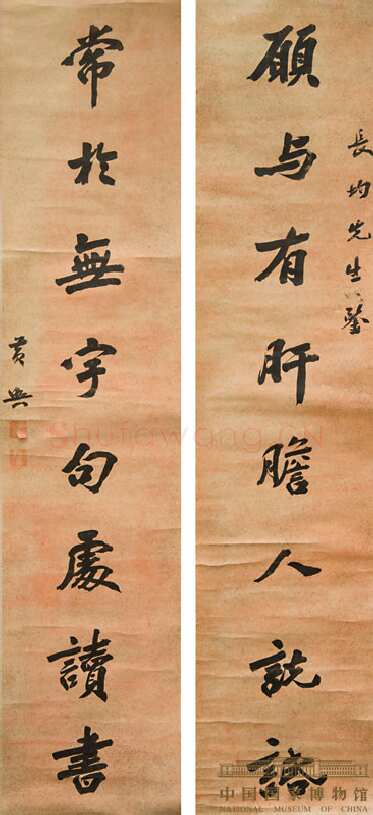 長均先生鑒
願与有肝膽人說話
常於無字句處讀書
黃興
Shufawang.CN
中国国家博物馆
NATIONAL MUSEUM OF CHINA